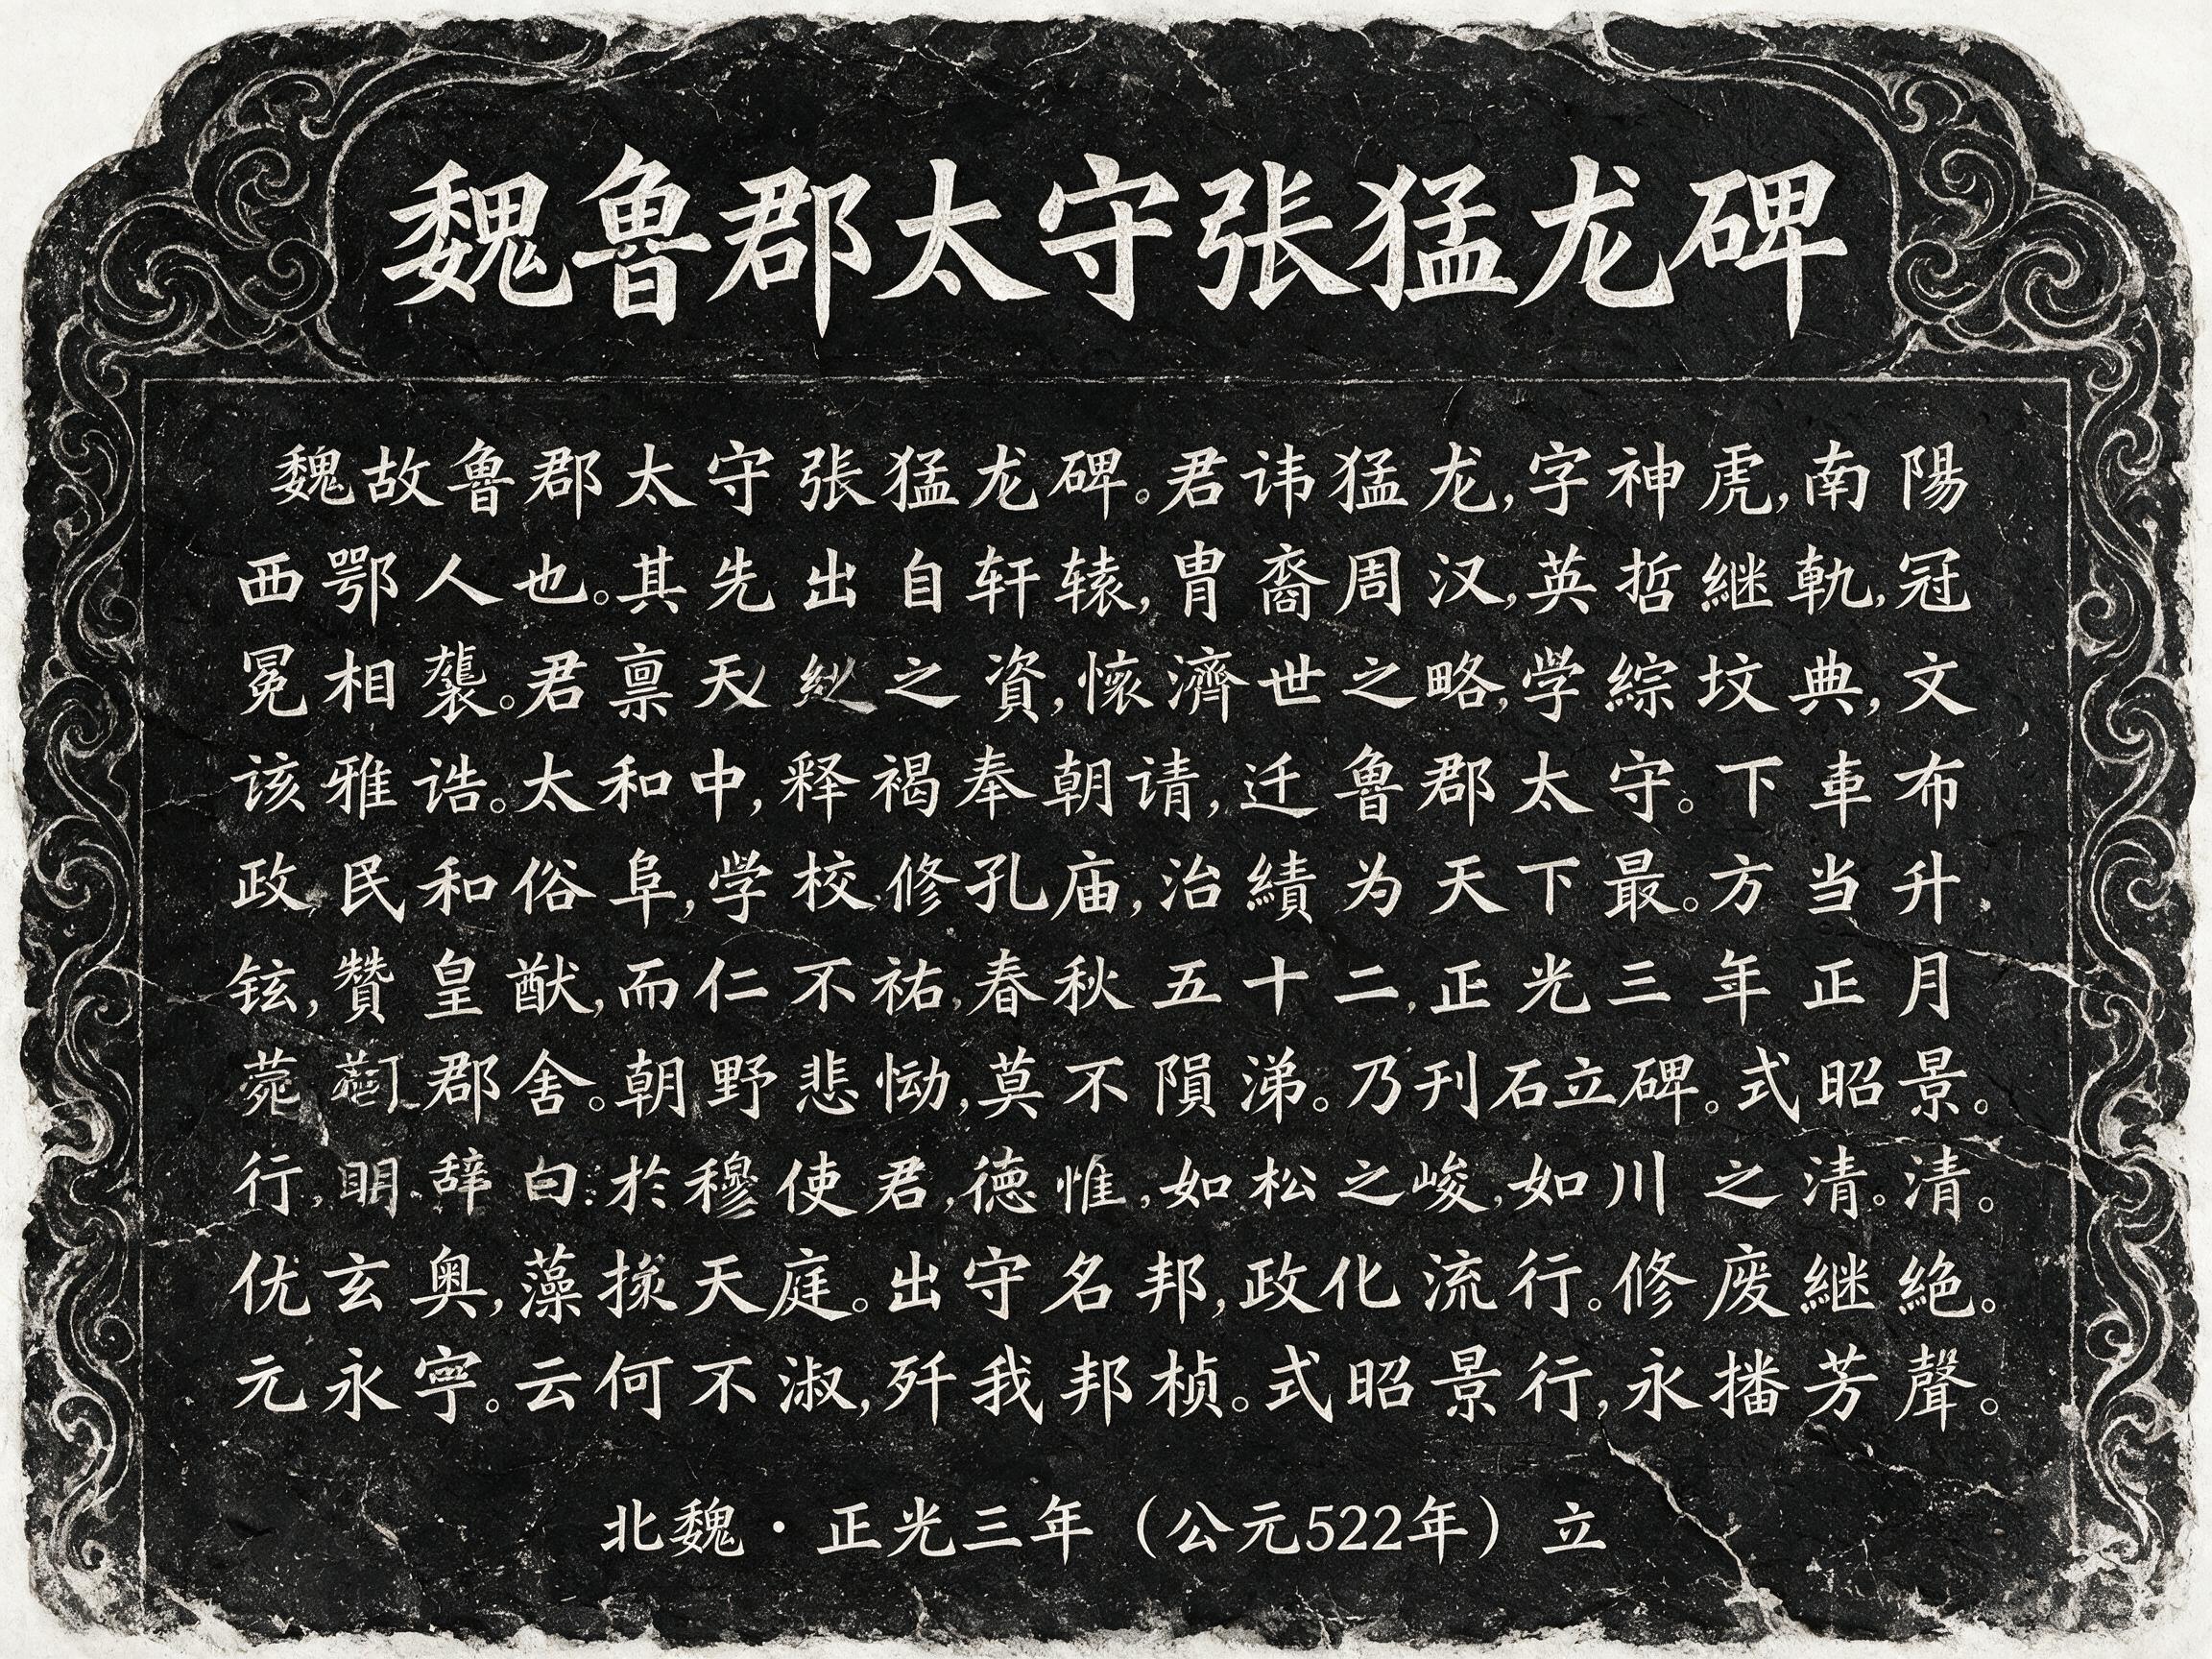 魏魯郡太守張猛龙碑
魏故魯郡太守張猛龙碑。君讳猛龙,字神虎,南陽
西鄂人也。其先出自轩辕,胄裔周汉,英哲継軌,冠
冕相襲。君禀天之資,懷濟世之略,学綜坟典,文
该雅诰。太和中,释褐奉朝请,迁魯郡太守。下車布
政,民和俗阜,学校修孔庙,治績为天下最。方当升
铉,贊皇猷,而仁不祐,春秋五十二,正光三年正月
郡舍。朝野悲恸,莫不隕涕。乃刊石立碑。式昭景。
行,明辞曰:於穆使君,德惟,如松之峻,如川之清。清。
优玄奥,藻掞天庭。出守名邦,政化流行。修废継絶。
元永宁。云何不淑,歼我邦桢。式昭景行,永播芳聲。
北魏·正光三年（公元522年）立